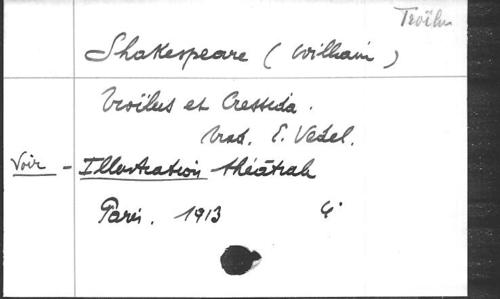 Troïlus
Shakespeare (William)
Troïlus et Cressida.
trad. E. Vedel.
Voir - Illustration théâtrale
Paris. 1913 4°